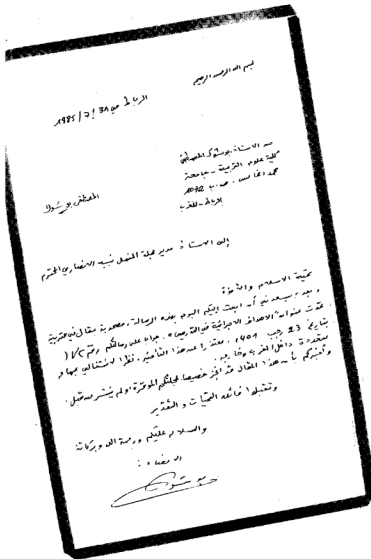 بسم الله الرحمن الرحيم
الرباط في 31/7/1985
من الاستاذ بوشوك المصطفى
كلية علوم التربية - جامعة
محمد الخامس. ص. ب 1072
الرباط - المغرب
المصطفى بوشوك
إلى الاستاذ مدير مجلة المنهل نبيه الانصاري المحترم
تحية الاسلام والأخوة
وبعد يسعدني أن ابعث إليكم اليوم بهذه الرسالة، مصحوبة بمقال في التربية
تحت عنوان "الاهداف الاجرائية في التدريس". جوابا على رسالتكم رقم
بتاريخ 23 رجب 1405. معتذرا عن هذا التأخير، نظرا لانشغالي بمهام
متعددة داخل المغرب وخارجه.
وأخبركم بأن هذا المقال قد أنجز خصيصا لمجلتكم الموقرة ولم ينشر من قبل.
وتقبلوا فائق التحيات والتقدير
والسلام عليكم ورحمة الله وبركاته
الامضاء: